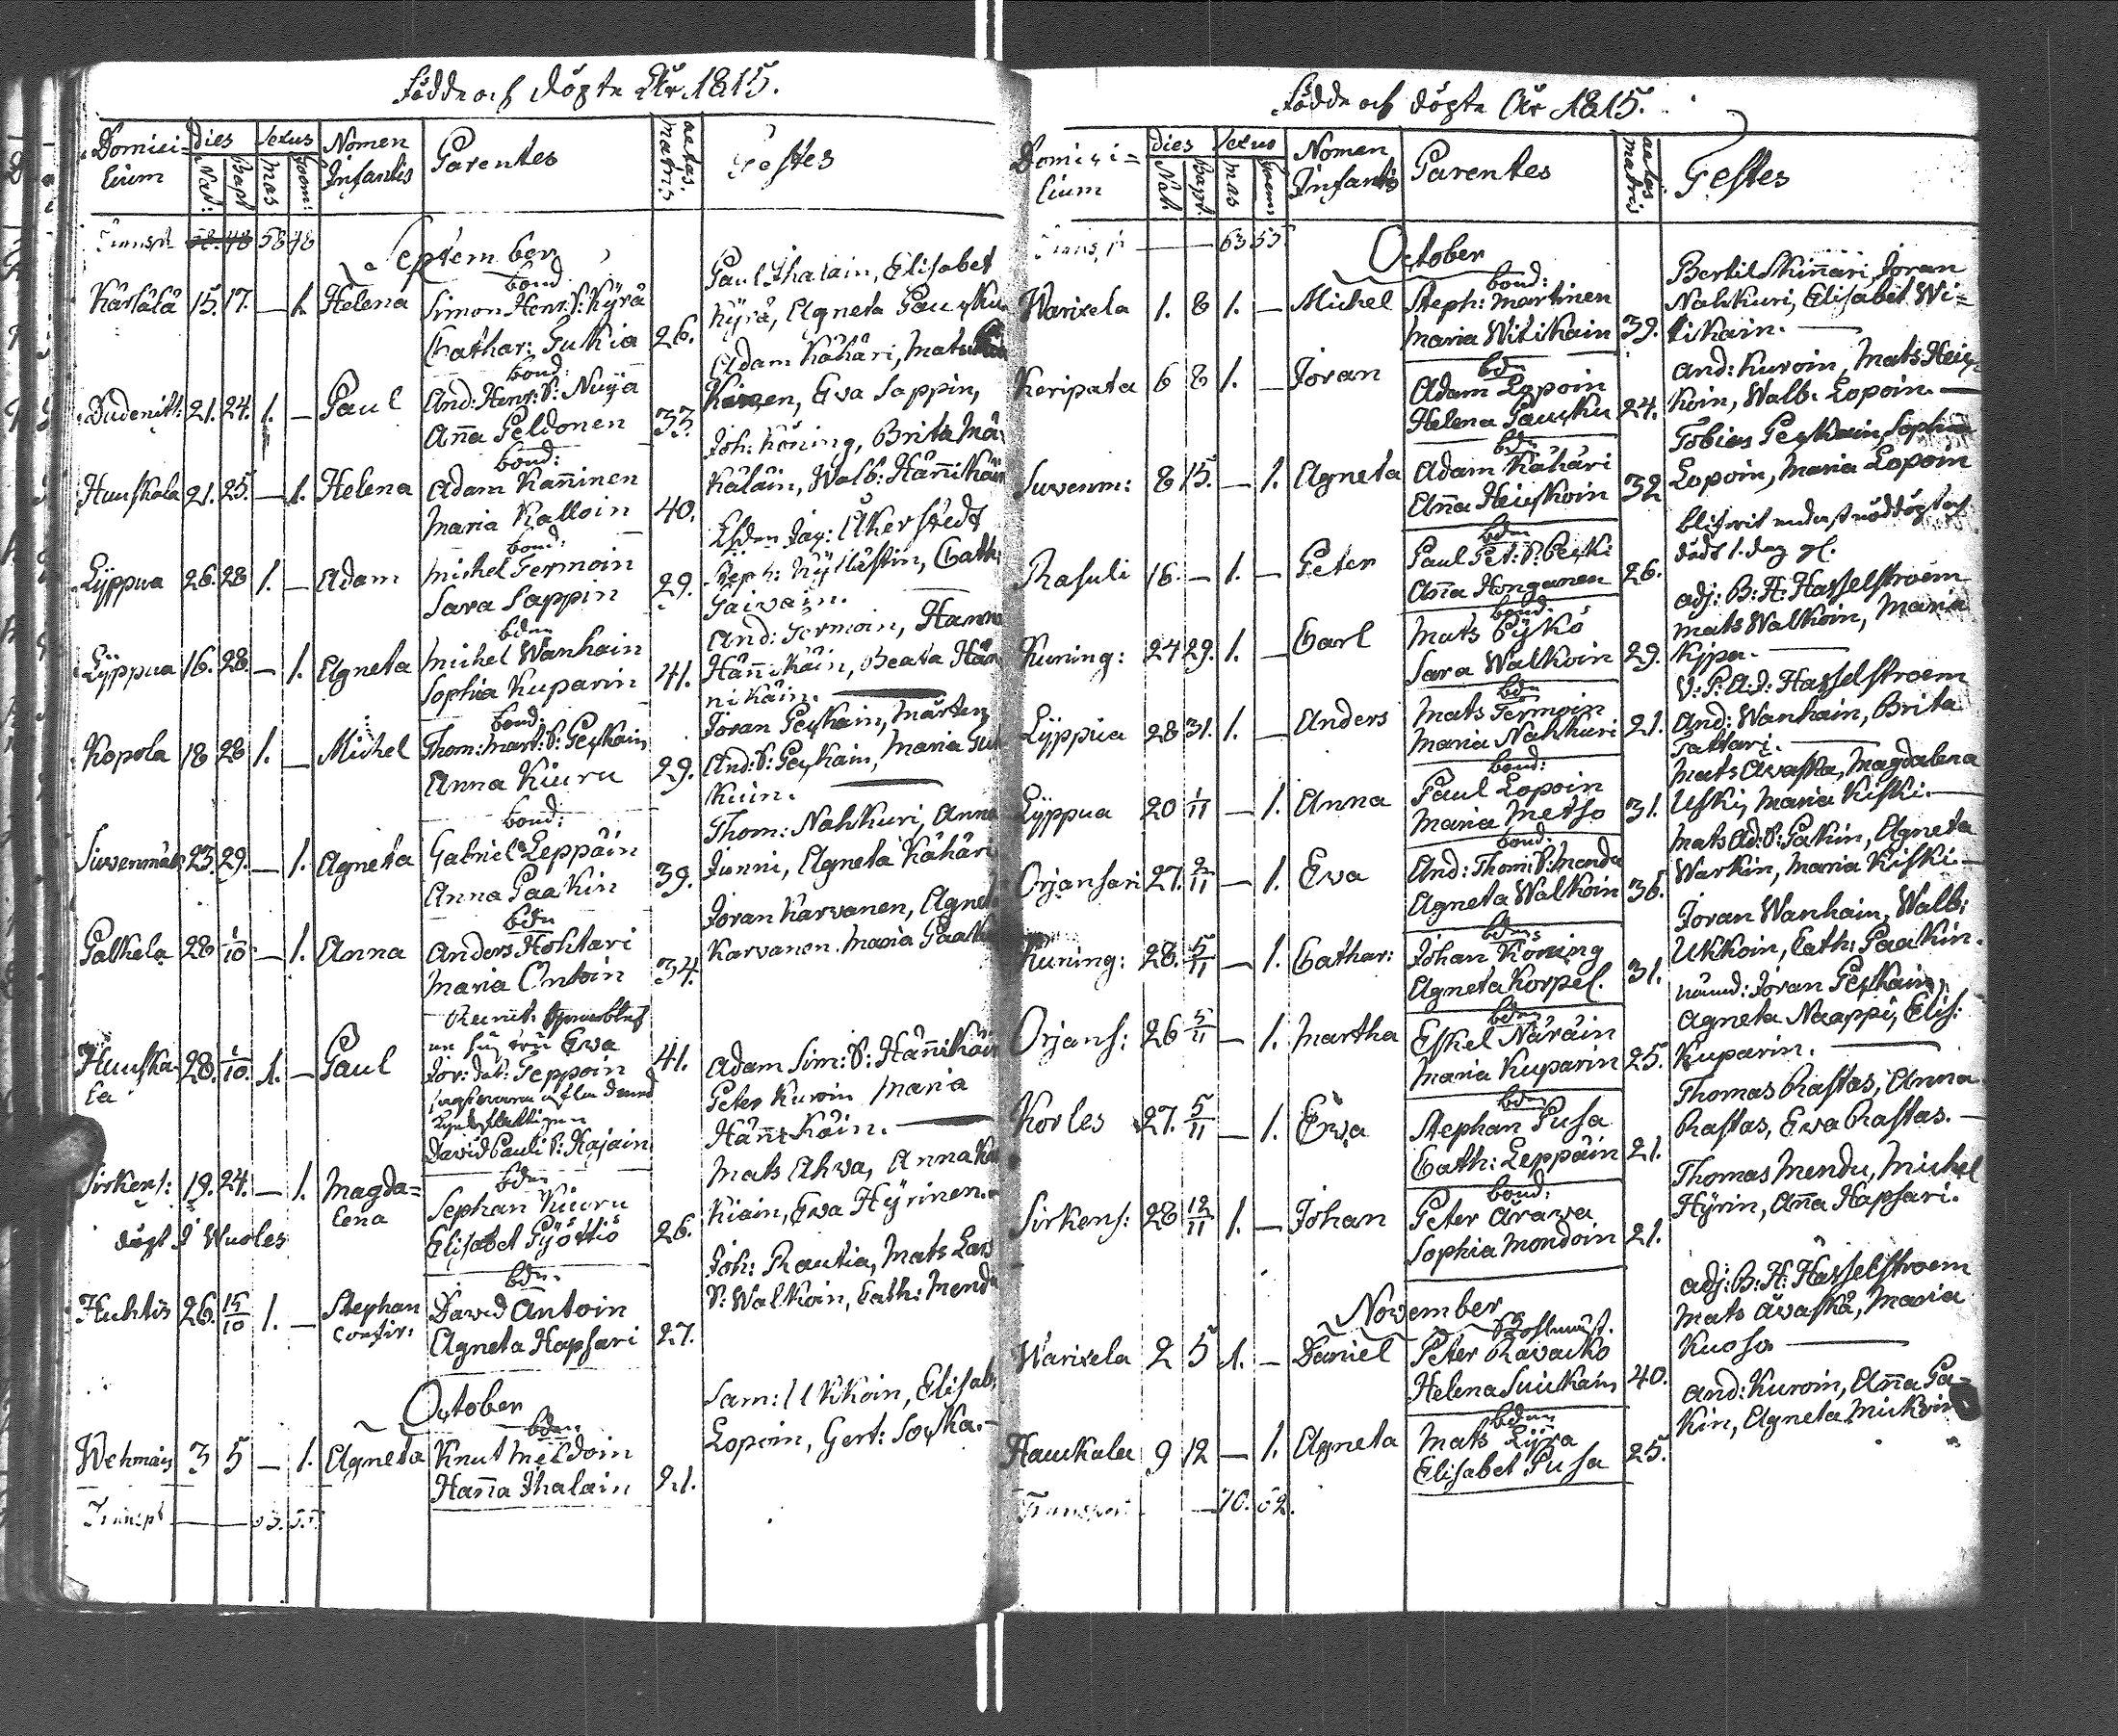 Födde och Döpte År 1815.
Domici=
lium
Dies
Nat:
Bapt
Sexus
Mas
Foem:
Nomen
Infantis
Parentes
aetas.
matris
Testes
Transpt 58 48
September
Kärlälä 15. 17. — 1. Helena
bond:
Simon Henr: S: Kyrä
Cathar: Sutkia 26.
Paul Ihalain, Elisabet
Kyrä, Agneta
Dudenitt: 21. 24. 1. — Paul
bond:
And: Henr: S: Nuija
Anna Peldonen 33.
Adam Kähäri, Mats
Eva Sappin,
Huuskala 21. 25. — 1. Helena
bond:
Adam Kanninen
Maria Kalloin 40.
Joh: Köning, Brita Mä
käläin, Walb: Hännikäin
Lyppua 26. 28 1. — Adam
bond:
Michel Termoin
Sara Sappin 29.
Jac: Åkerstedt
Steph: Kylläстin, Cath:
Paivain.
Lyppua 16. 28. — 1. Agneta
bdn
Michel Wanhain
Sophia Kuparin 41.
And: Termoin, Hanna
Hännikäin, Beata Hän
nikäin. —
Kopola 18 28 1. — Michel
bond:
Thom: Mart: S: Peskain
Anna Kiuru 29.
Jöran Peskain, Mårten
And: S: Peskain, Maria
kuin. —
Suvenmäki 23. 29. — 1. Agneta
bond:
Gabriel Leppäin
Anna Paakin 39.
Thom: Nahkuri, Anna
Junni, Agneta Kähäri
Palkela 28 1/10 — 1. Anna
bdn
Anders Hohtari
Maria Ontoin 34.
Jöran Karvanen, Agneta
Karvanen. Maria Paak
Huuska-
la 28. 1/10. 1. — Paul
Ewa
Teppoin 41.
David Pauli S: Kajain
Adam Sim: S: Hännikäin
Peter Kuroin Maria
Hännikäin. —
Sirkens: 19. 24. — 1. Magda=
lena
döpt i Wuoles
bdn
Stephan Kiuru
Elisabet Pyöttiö 26.
Mats Ahva, Anna
Kiain, Ewa Hyrinen.
Huhtis 26. 15/10 1. — Stephan
confir:
bdn.
David Antoin
Agneta Hapsari 27.
Joh: Rautia, Mats Lars
S: Walkoin, Cath: Mendu
October
Wehmais 3 5 — 1. Agneta
bdn
Knut Meldoin
Hanna Ihalain 21.
Sam: Ukkoin, Elisab:
Lopoin, Gert: Soikka. —
Transpt —
Födde och Döpte År 1815.
Domici=
lium
Dies
Nat:
Bapt.
Sexus
Mas
Foem
Nomen
Infantis
Parentes
aetas
matris
Testes
Transpt — 63 53
October
Warixela 1. 8 1. — Michel
bond:
Steph: Martinen
Maria Witikain 39.
Bertil Skinnari, Jöran
Nahkuri, Elisabet Wi=
tikain. —
Keripata 6 8 1. — Jöran
bdn
Adam Lopoin
Helena Pausku 24.
And: Kuroin, Mats Heis
koin, Walb: Lopoin. —
Suvenm: 8 15. — 1. Agneta
bdn
Adam Kähäri
Anna Heiskoin 32
Tobias Peskain, Sophia
Lopoin, Maria Lopoin
Rasuli 16. — 1. — Peter
bdn
Paul Pet: S: Peski
Anna Honganen 26.
blifvit endast nöddöpt och
död 1. dag gl.
Kuning: 24 29. 1. — Carl
bond:
Mats Pykö
Sara Walkoin 29.
adj: B: H: Hasselstroem
Mats Walkoin, Maria
Kypa. —
Lyppua 28 31. 1. — Anders
bdn
Mats Termoin
Maria Nahkuri 21.
V: P: A: J: Hasselstroem
And: Wanhain, Brita
Tattari. —
Lyppua 20 1/11 — 1. Anna
bond:
Paul Lopoin
Maria Metso 31.
Mats Avaska, Magdalena
Uski, Maria Kiski. —
Orjansari 27. 2/11 — 1. Eva
bond:
And: Thom: S: Mendu
Agneta Walkoin 36.
Mats Ad: S: Pakin, Agneta
Warkin, Maria Kiski —
Kuning: 28. 5/11 — 1. Cathar:
bdn
Johan Köning
Agneta Korpel. 31.
Jöran Wanhain, Walb:
Ukkoin, Cath: Paakin.
Orjans: 26 5/11 — 1. Martha
bdn
Eskel Näräin
Maria Kuparin 25.
nämd: Jöran Peskain,
Agneta Naappi, Elis:
Kuparin. —
Korles 27. 5/11 — 1. Ewa
bdn
Stephan Pusa
Cath: Leppäin 21.
Thomas Rastas, Anna
Rastas, Ewa Rastas. —
Sirkens: 28 12/11 1. — Johan
bond:
Peter Arava
Sophia Mondoin 21.
Thomas Mendu, Michel
Hyrin, Anna Hapsari.
November
Warixela 2 5 1. — Daniel
Peter Ravasko
Helena Suikain 40.
adj: B: H: Hasselstroem
Mats Avaska, Maria
Kuosa —
Haukala 9 12 — 1. Agneta
bdn
Mats Lyra
Elisabet Pusa 25.
And: Kuroin, Anna Pa=
kin, Agneta Mickoin
Transport — 70. 62.